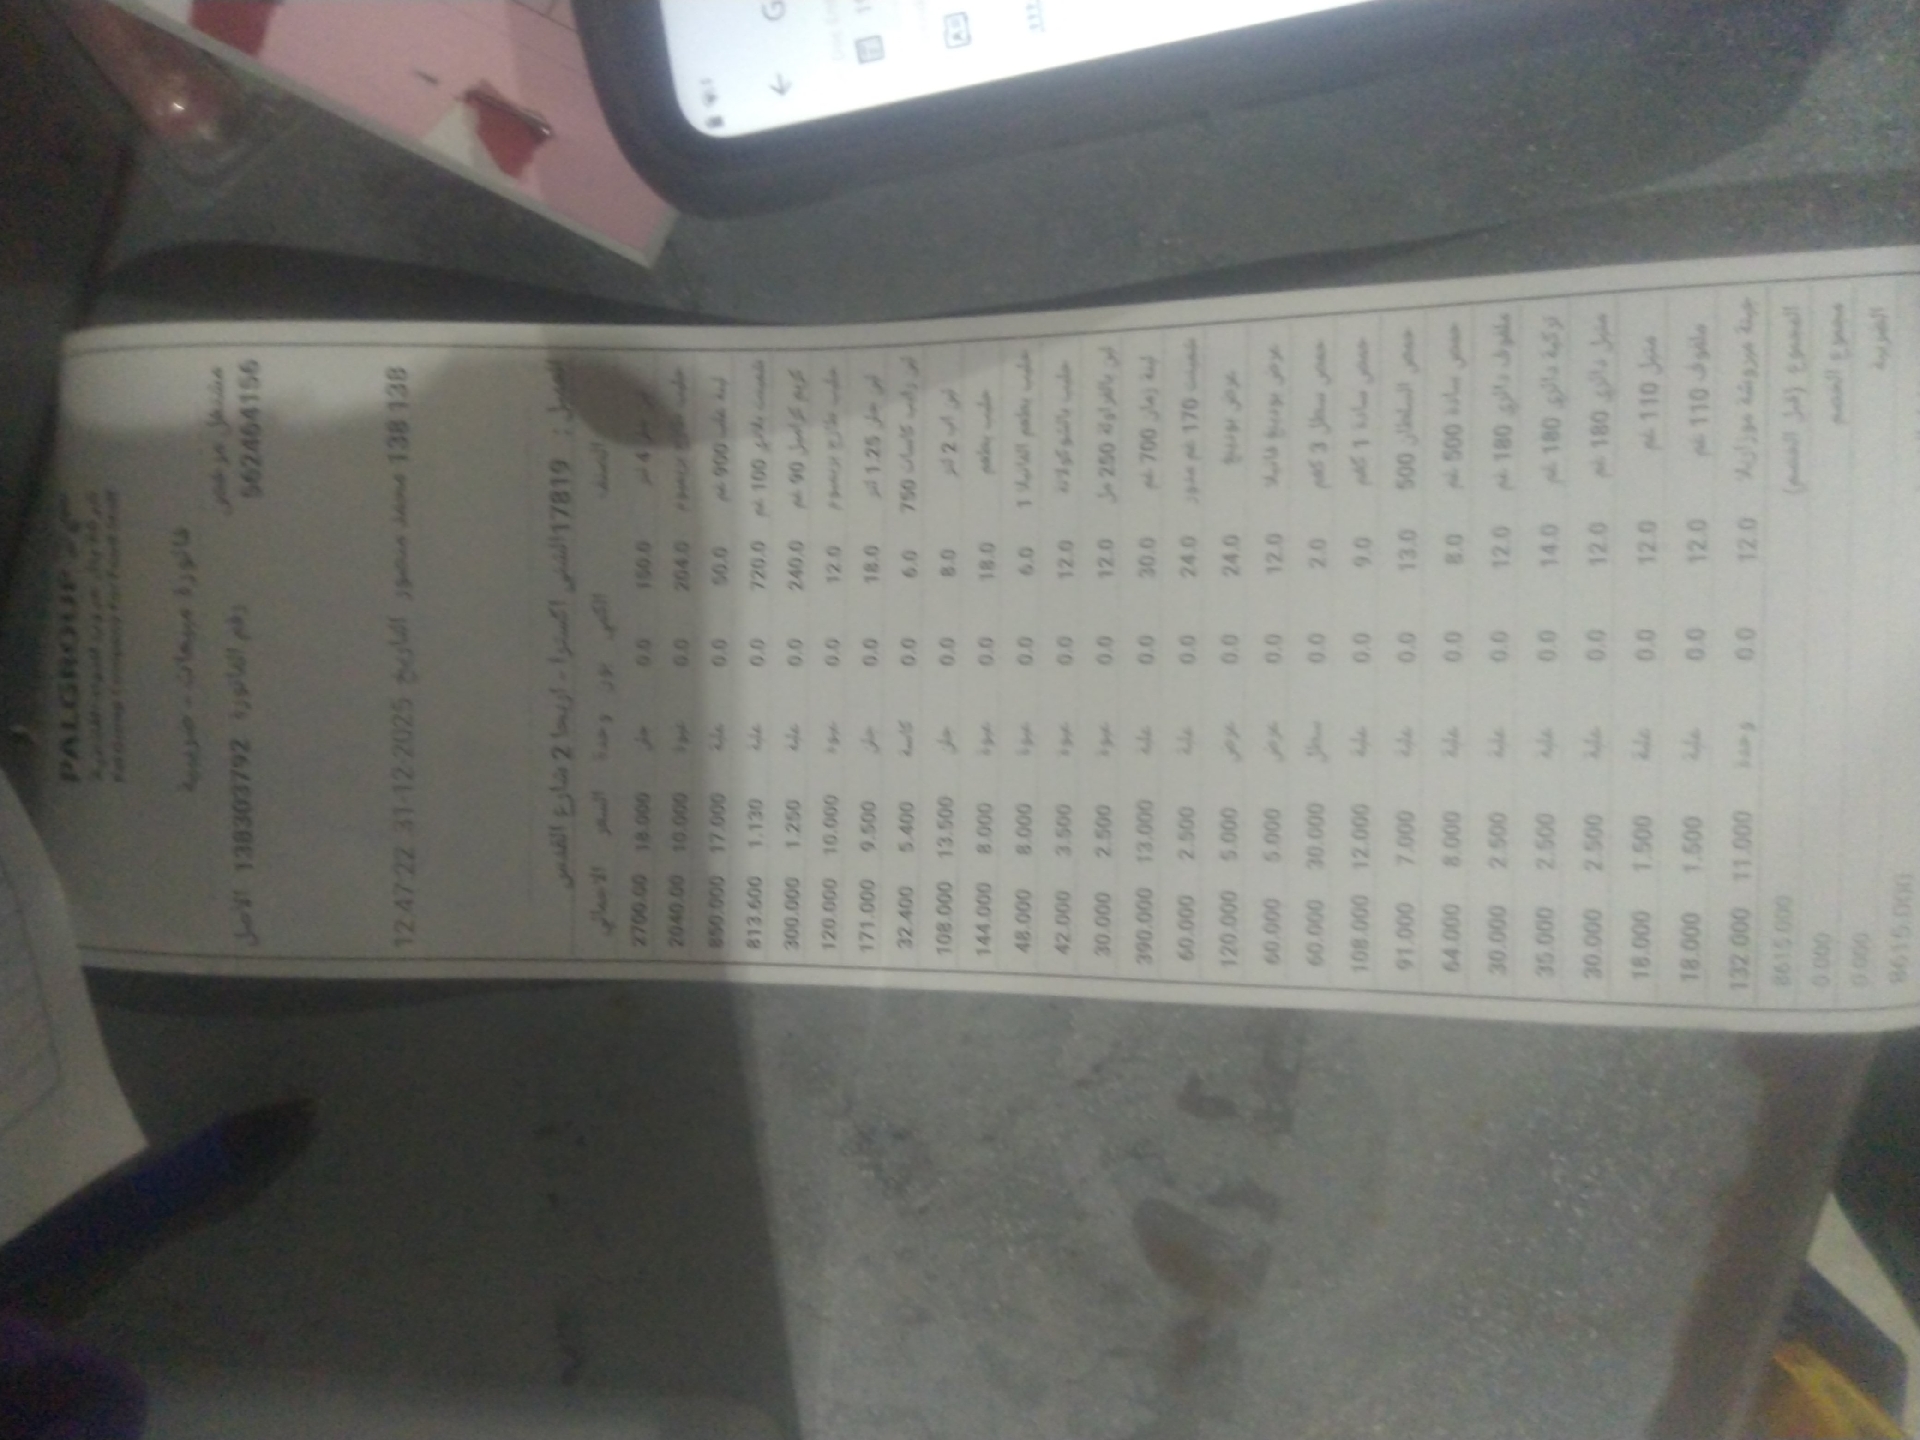 PALGROUP
فاتورة مبيعات - ضريبية
مشتغل مرخص
562464156
رقم الفاتورة 138303792 الاصل
138 138 محمد منصور التاريخ 31-12-2025 12:47:22
العميل : 17819 اكسترا - اريحا 2 شارع القدس
الصنف الكمي بون وحدة السعر الاجمالي
4 لتر 150.0 0.0 جلن 18.000 2700.00
حليب طازج برميوم 204.0 0.0 عبوة 10.000 2040.00
لبنة علب 900 غم 50.0 0.0 علبة 17.000 850.000
شمينت بلادي 100 غم 720.0 0.0 علبة 1.130 813.600
كريم كراميل 90 غم 240.0 0.0 علبة 1.250 300.000
حليب طازج برميوم 12.0 0.0 عبوة 10.000 120.000
لبن جلن 1.25 لتر 18.0 0.0 جلن 9.500 171.000
لبن رائب كاسات 750 6.0 0.0 كاسة 5.400 32.400
لبن اب 2 لتر 8.0 0.0 جلن 13.500 108.000
حليب بطعم 18.0 0.0 عبوة 8.000 144.000
حليب بطعم الفانيلا 1 6.0 0.0 عبوة 8.000 48.000
حليب بالشوكولاتة 12.0 0.0 عبوة 3.500 42.000
لبن بالفراولة 250 مل 12.0 0.0 عبوة 2.500 30.000
لبنة زمان 700 غم 30.0 0.0 علبة 13.000 390.000
شمينت 170 غم مدور 24.0 0.0 علبة 2.500 60.000
عرض بودينغ 24.0 0.0 عرض 5.000 120.000
عرض بودينغ فانيلا 12.0 0.0 عرض 5.000 60.000
حمص سطل 3 كغم 2.0 0.0 سطل 30.000 60.000
حمص سادة 1 كغم 9.0 0.0 علبة 12.000 108.000
حمص السلطان 500 13.0 0.0 علبة 7.000 91.000
حمص سادة 500 غم 8.0 0.0 علبة 8.000 64.000
ملفوف دائري 180 غم 12.0 0.0 علبة 2.500 30.000
تركية دائري 180 غم 14.0 0.0 علبة 2.500 35.000
متبل دائري 180 غم 12.0 0.0 علبة 2.500 30.000
متبل 110 غم 12.0 0.0 علبة 1.500 18.000
ملفوف 110 غم 12.0 0.0 علبة 1.500 18.000
جبنة مبروشة موزاريلا 12.0 0.0 وحدة 11.000 132.000
المجموع (قبل الخصم) 8615.000
مجموع الخصم 0.000
الضريبة 0.000
8615.000